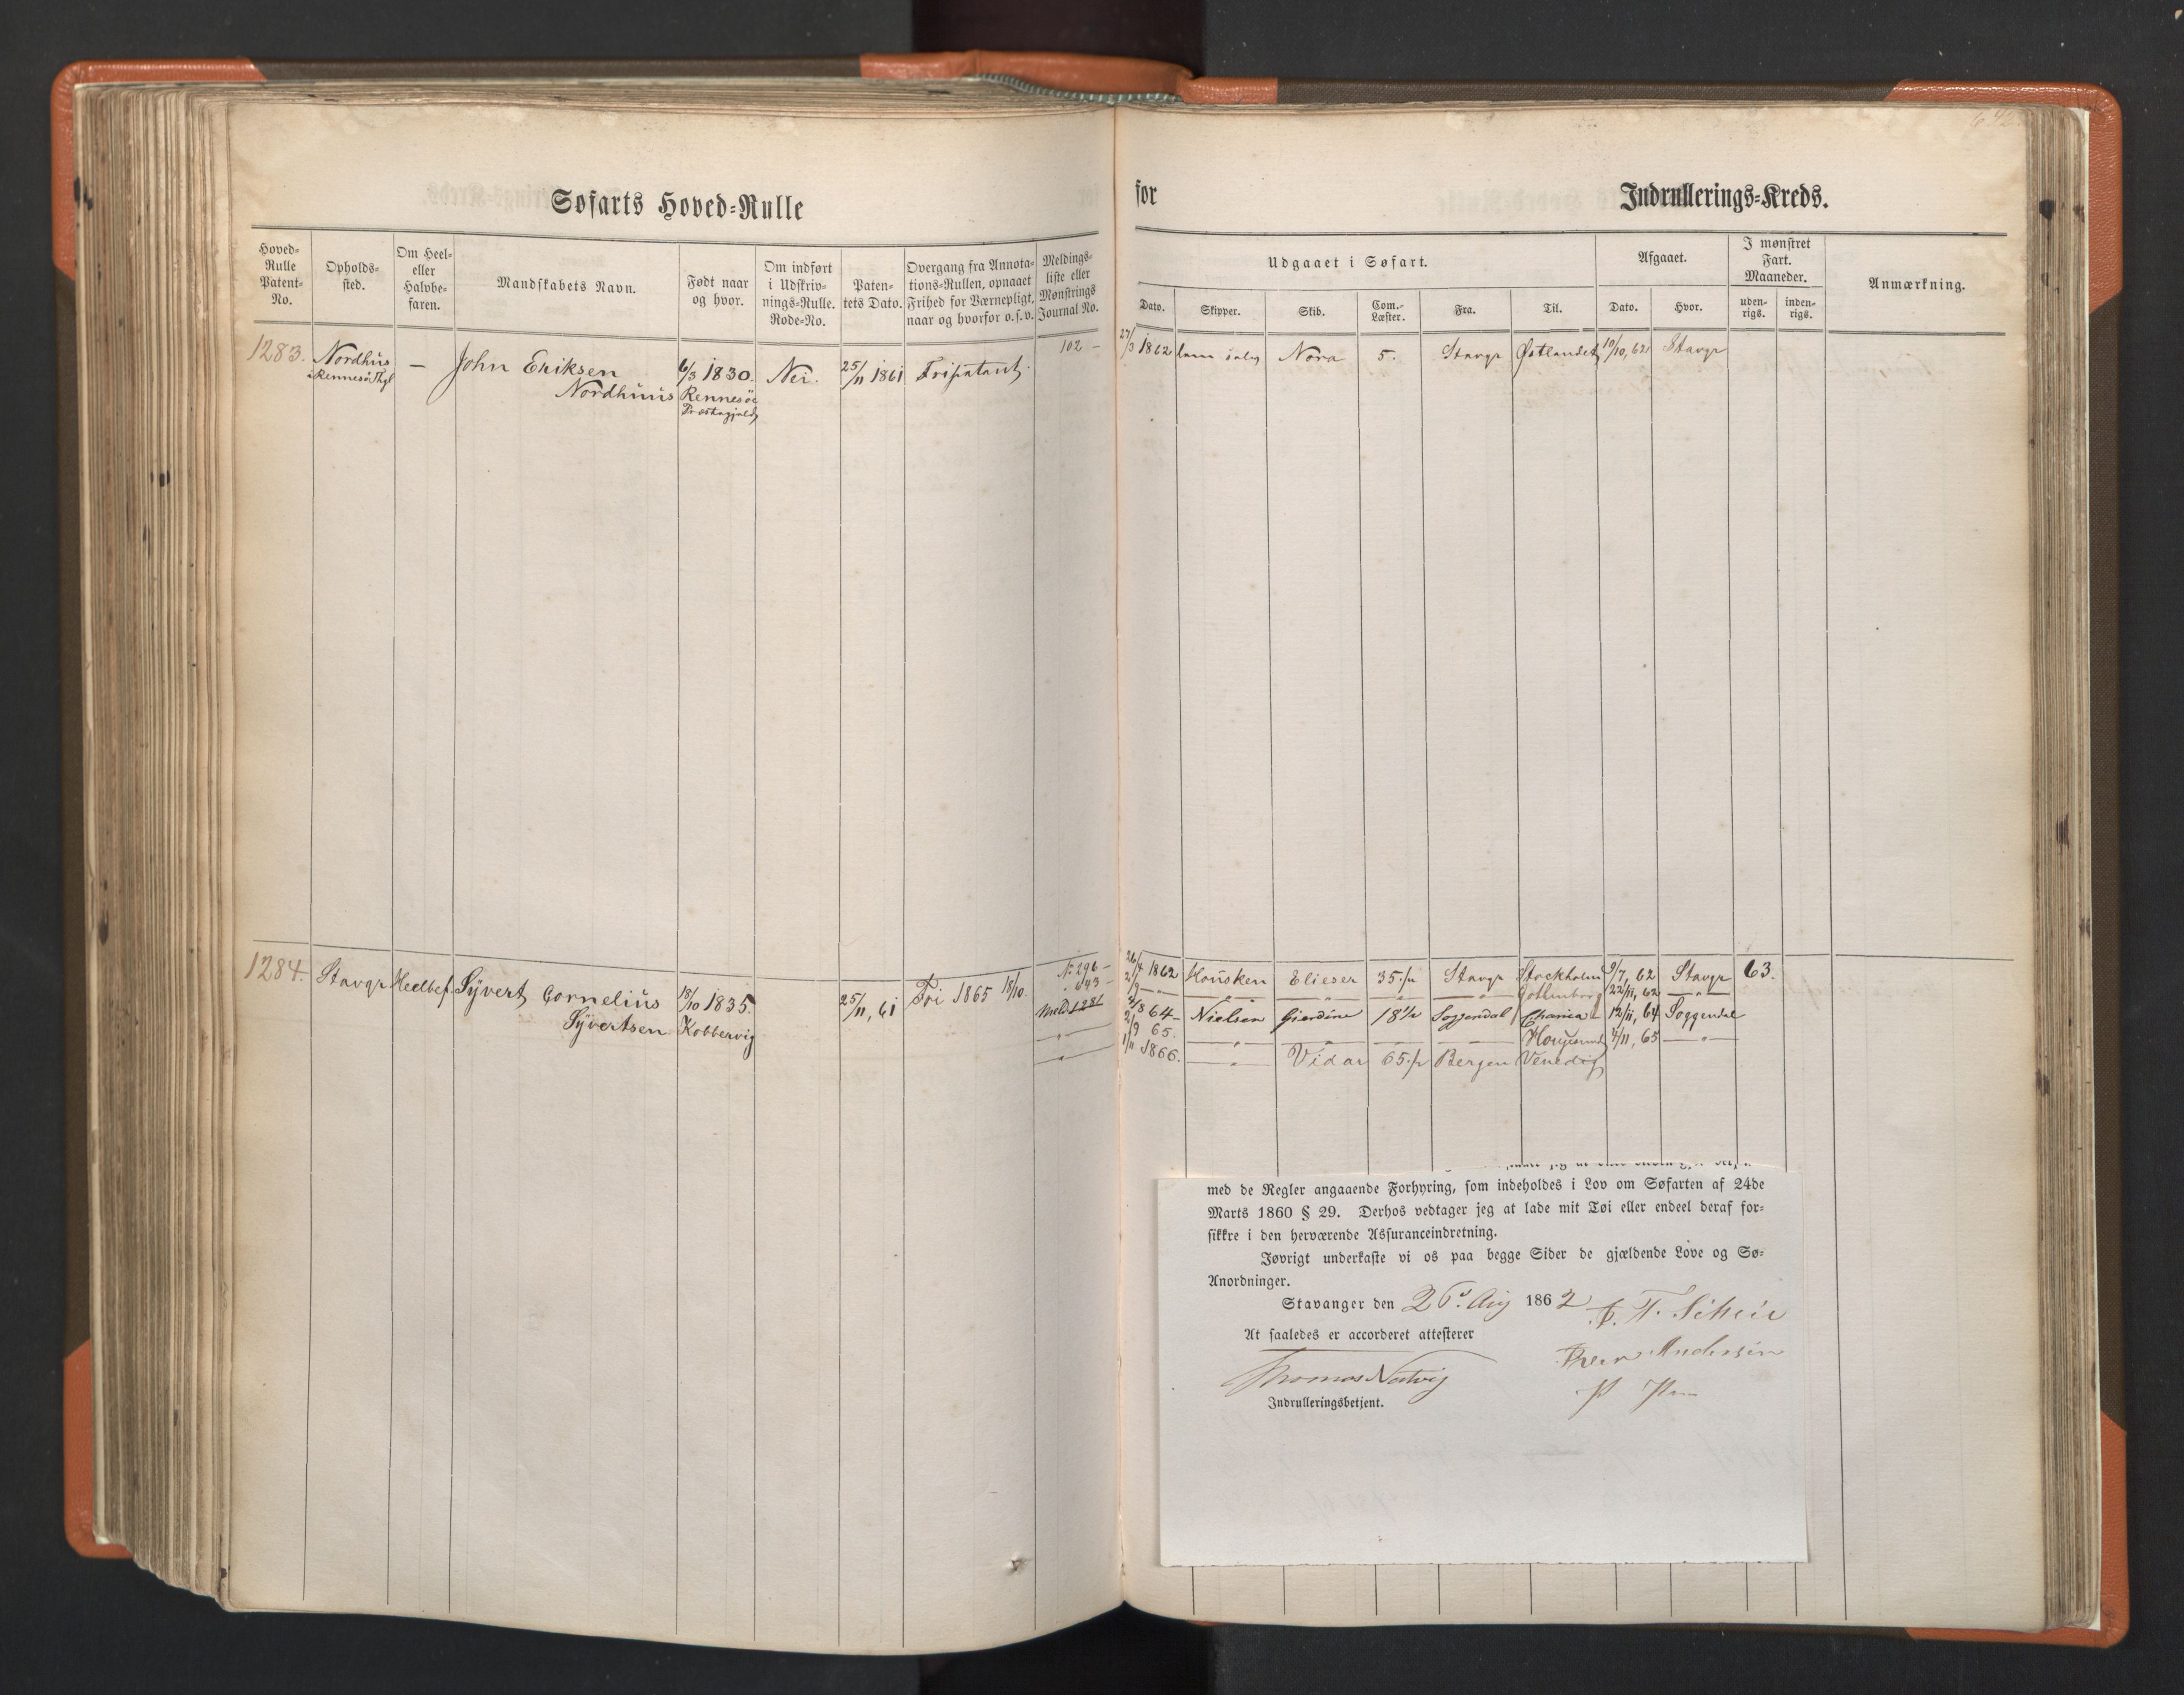 642
Søfarts Hoved-Rulle
for
Indrullerings-Kreds.
Hoved-Rulle Patent-No.
Opholds-sted.
Om Heel- eller Halvbe-faren.
Mandskabets Navn.
Født naar og hvor.
Om indført i Udskriv-nings-Rulle. Rode-No.
Paten-tets Dato.
Overgang fra Annota-tions-Rullen, opnaaet Frihed for Værnepligt, naar og hvorfor o. s. v.
Meldings-liste eller Mønstrings Journal No.
Udgaaet i Søfart.
Dato.
Skipper.
Skib.
Com.-Læster.
Fra.
Til.
Afgaaet.
Dato.
Hvor.
I mønstret Fart. Maaneder.
uden-rigs.
inden-rigs.
Anmærkning.
1283. Nordhuus — John Eriksen 6/3 1830. Nei. 25/11 1861 Fripatent. 102 — 27/3 1862 Nora 5. Stavgr Østlandet 10/10, 62 Stavgr
Rennesö Thgl Nordhuus Rennesöe
Præstegjeld
1284. Stavgr Heelbef. Syvert Cornelius 18/10 1835. 25/11, 61 Fri 1865 18/10. N: 296 — 26/4 1862 Housken Elieser 35 Stavgr Stockholm 9/7, 62 Stavgr 63.
Syvertsen Kobbervig " 643 — 2/9 — " — — " — — " — — " — Gothenborg 22/11, 62 — " —
Meld 1281 64 — Nielsen Gierdine 18½ Soggendal Chania 12/11, 64 Soggendal
— " — 2/9 65. — " — — " — — " — — " — Haugesund 4/11, 65 — " —
— " — 1/11 1866. — " — Vidar 65 Bergen Venedig
med de Regler angaaende Forhyring, som indeholdes i Lov om Søfarten af 24de
Marts 1860 § 29. Derhos vedtager jeg at lade mit Tøi eller endeel deraf for-
sikkre i den herværende Assuranceindretning.
Iøvrigt underkaste vi os paa begge Sider de gjældende Love og Sø-
Anordninger.
Stavanger den 26 Aug 1862
At saaledes er accorderet attesterer
Andersen
Thomas Natvig
Indrulleringsbetjent.